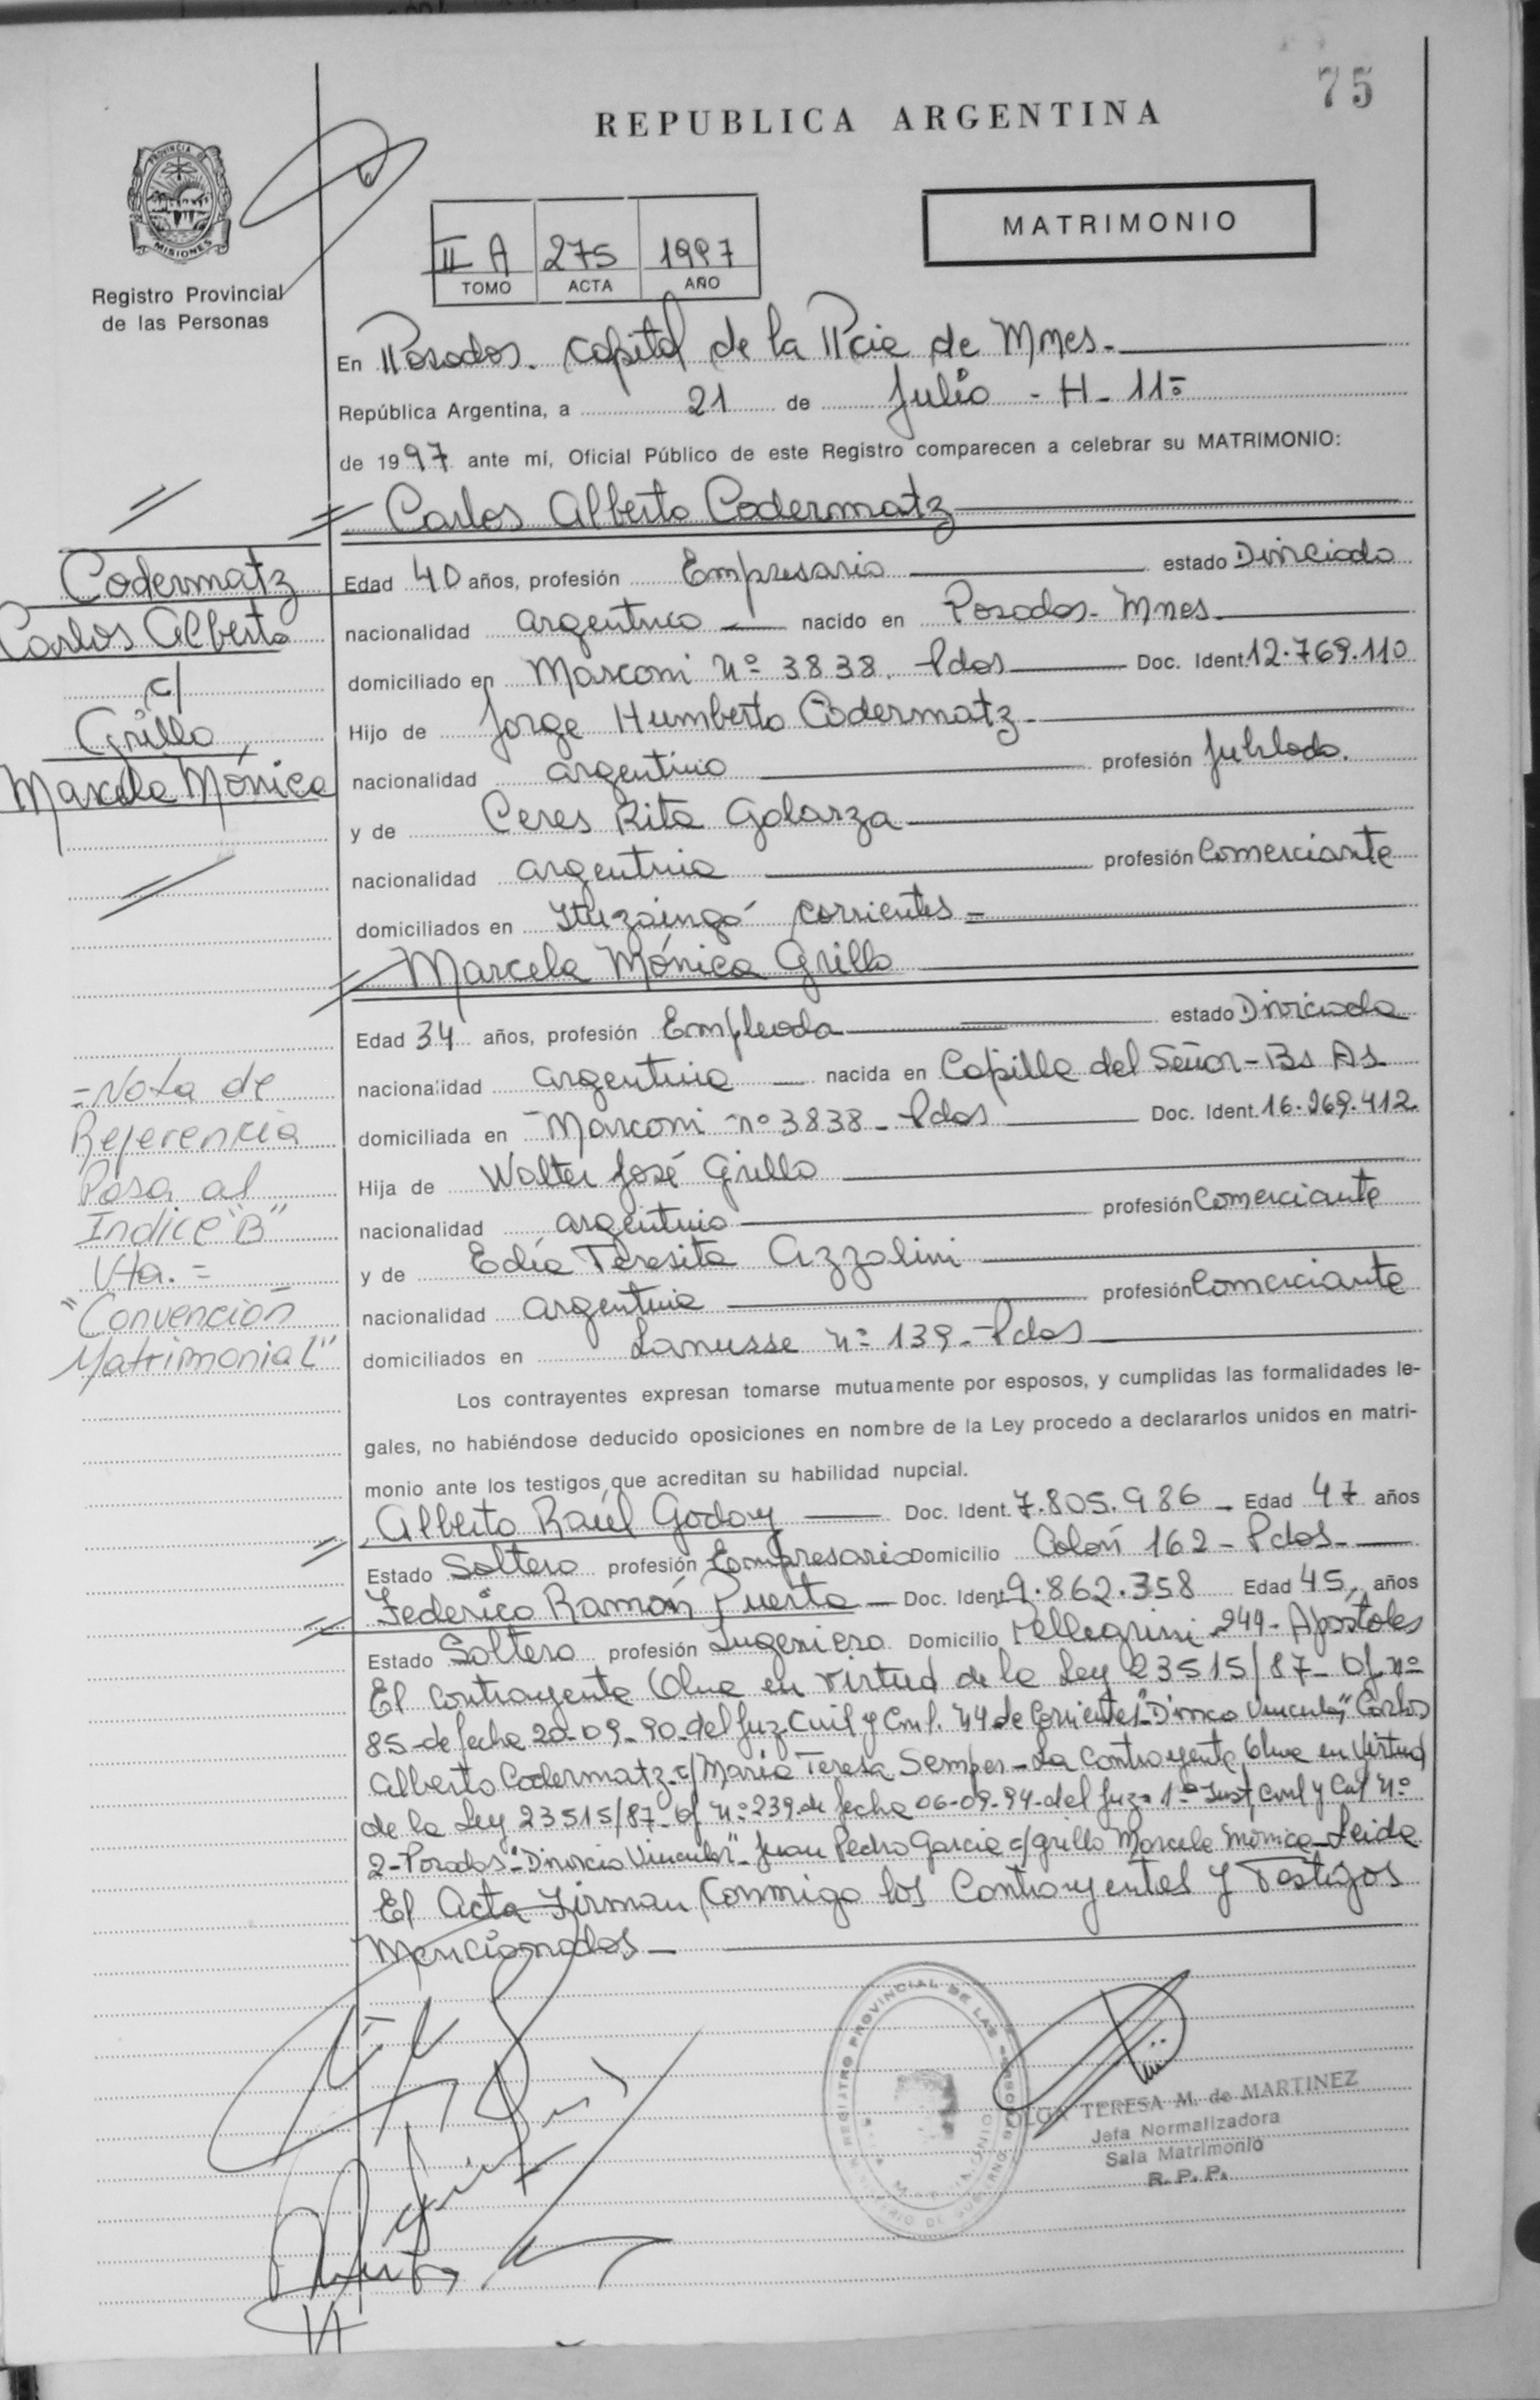 75
REPUBLICA ARGENTINA
PROVINCIA DE
MISIONES
Registro Provincial
de las Personas
MATRIMONIO
II A 275 1997
TOMO ACTA AÑO
En Posadas. Capital de la Pcia de Mnes.
República Argentina, a 21 de Julio - H - 11=
de 1997 ante mí, Oficial Público de este Registro comparecen a celebrar su MATRIMONIO:
Carlos Alberto Codermatz
Edad 40 años, profesión Empresario estado Divorciado
nacionalidad argentino nacido en Posadas - Mnes.
domiciliado en Marconi Nº 3838. Pdas Doc. Ident. 12.769.110
Hijo de Jorge Humberto Codermatz
nacionalidad argentino profesión Jubilado.
y de Ceres Rita Galarza
nacionalidad argentina profesión Comerciante
domiciliados en Ituzaingó Corrientes
Marcela Mónica Grillo
Edad 34 años, profesión Empleada estado Divorciada
nacionalidad argentina nacida en Capilla del Señor - Bs As
domiciliada en Marconi nº 3838 - Pdas Doc. Ident. 16.269.412
Hija de Walter José Grillo
nacionalidad argentino profesión Comerciante
y de Edía Teresita Azzolini
nacionalidad argentina profesión Comerciante
domiciliados en Lanusse nº 139 - Pdas
Los contrayentes expresan tomarse mutuamente por esposos, y cumplidas las formalidades le-
gales, no habiéndose deducido oposiciones en nombre de la Ley procedo a declararlos unidos en matri-
monio ante los testigos que acreditan su habilidad nupcial.
Alberto Raúl Godoy Doc. Ident. 7.805.986 - Edad 47 años
Estado Soltero profesión Empresario Domicilio Colón 162 - Pdas
Federico Ramón Puerta - Doc. Ident. 9.862.358 Edad 45 años
Estado Soltero profesión Ingeniero Domicilio Pellegrini 249 - Apóstoles
El Contrayente Obra en virtud de la Ley 23515/87 - Of. nº
85 - de fecha 20-09-90 - del Juz Civil y Cml. Nº4 de Corrientes "Divorcio Vincular" Carlos
Alberto Codermatz c/ María Teresa Semper - La Contrayente Obra en Virtud
de la Ley 23515/87 - Of. nº 239 de fecha 06-09-94 - del Juz 1º Inst Civil y Cml nº
2 - Posadas - "Divorcio Vincular" - Juan Pedro Garcia c/ Grillo Marcela Mónica - Leida
El Acta Firman Conmigo los Contrayentes y Testigos
Mencionados -
Codermatz
Carlos Alberto
c/
Grillo,
Marcela Mónica
= Nota de
Referencia
Pasa al
Indice "B"
Vta. =
"Convención
Matrimonial"
REGISTRO PROVINCIAL DE LAS PERSONAS
MINISTERIO DE GOBIERNO
OLGA TERESA M. de MARTINEZ
Jefa Normalizadora
Sala Matrimonio
R. P. P.